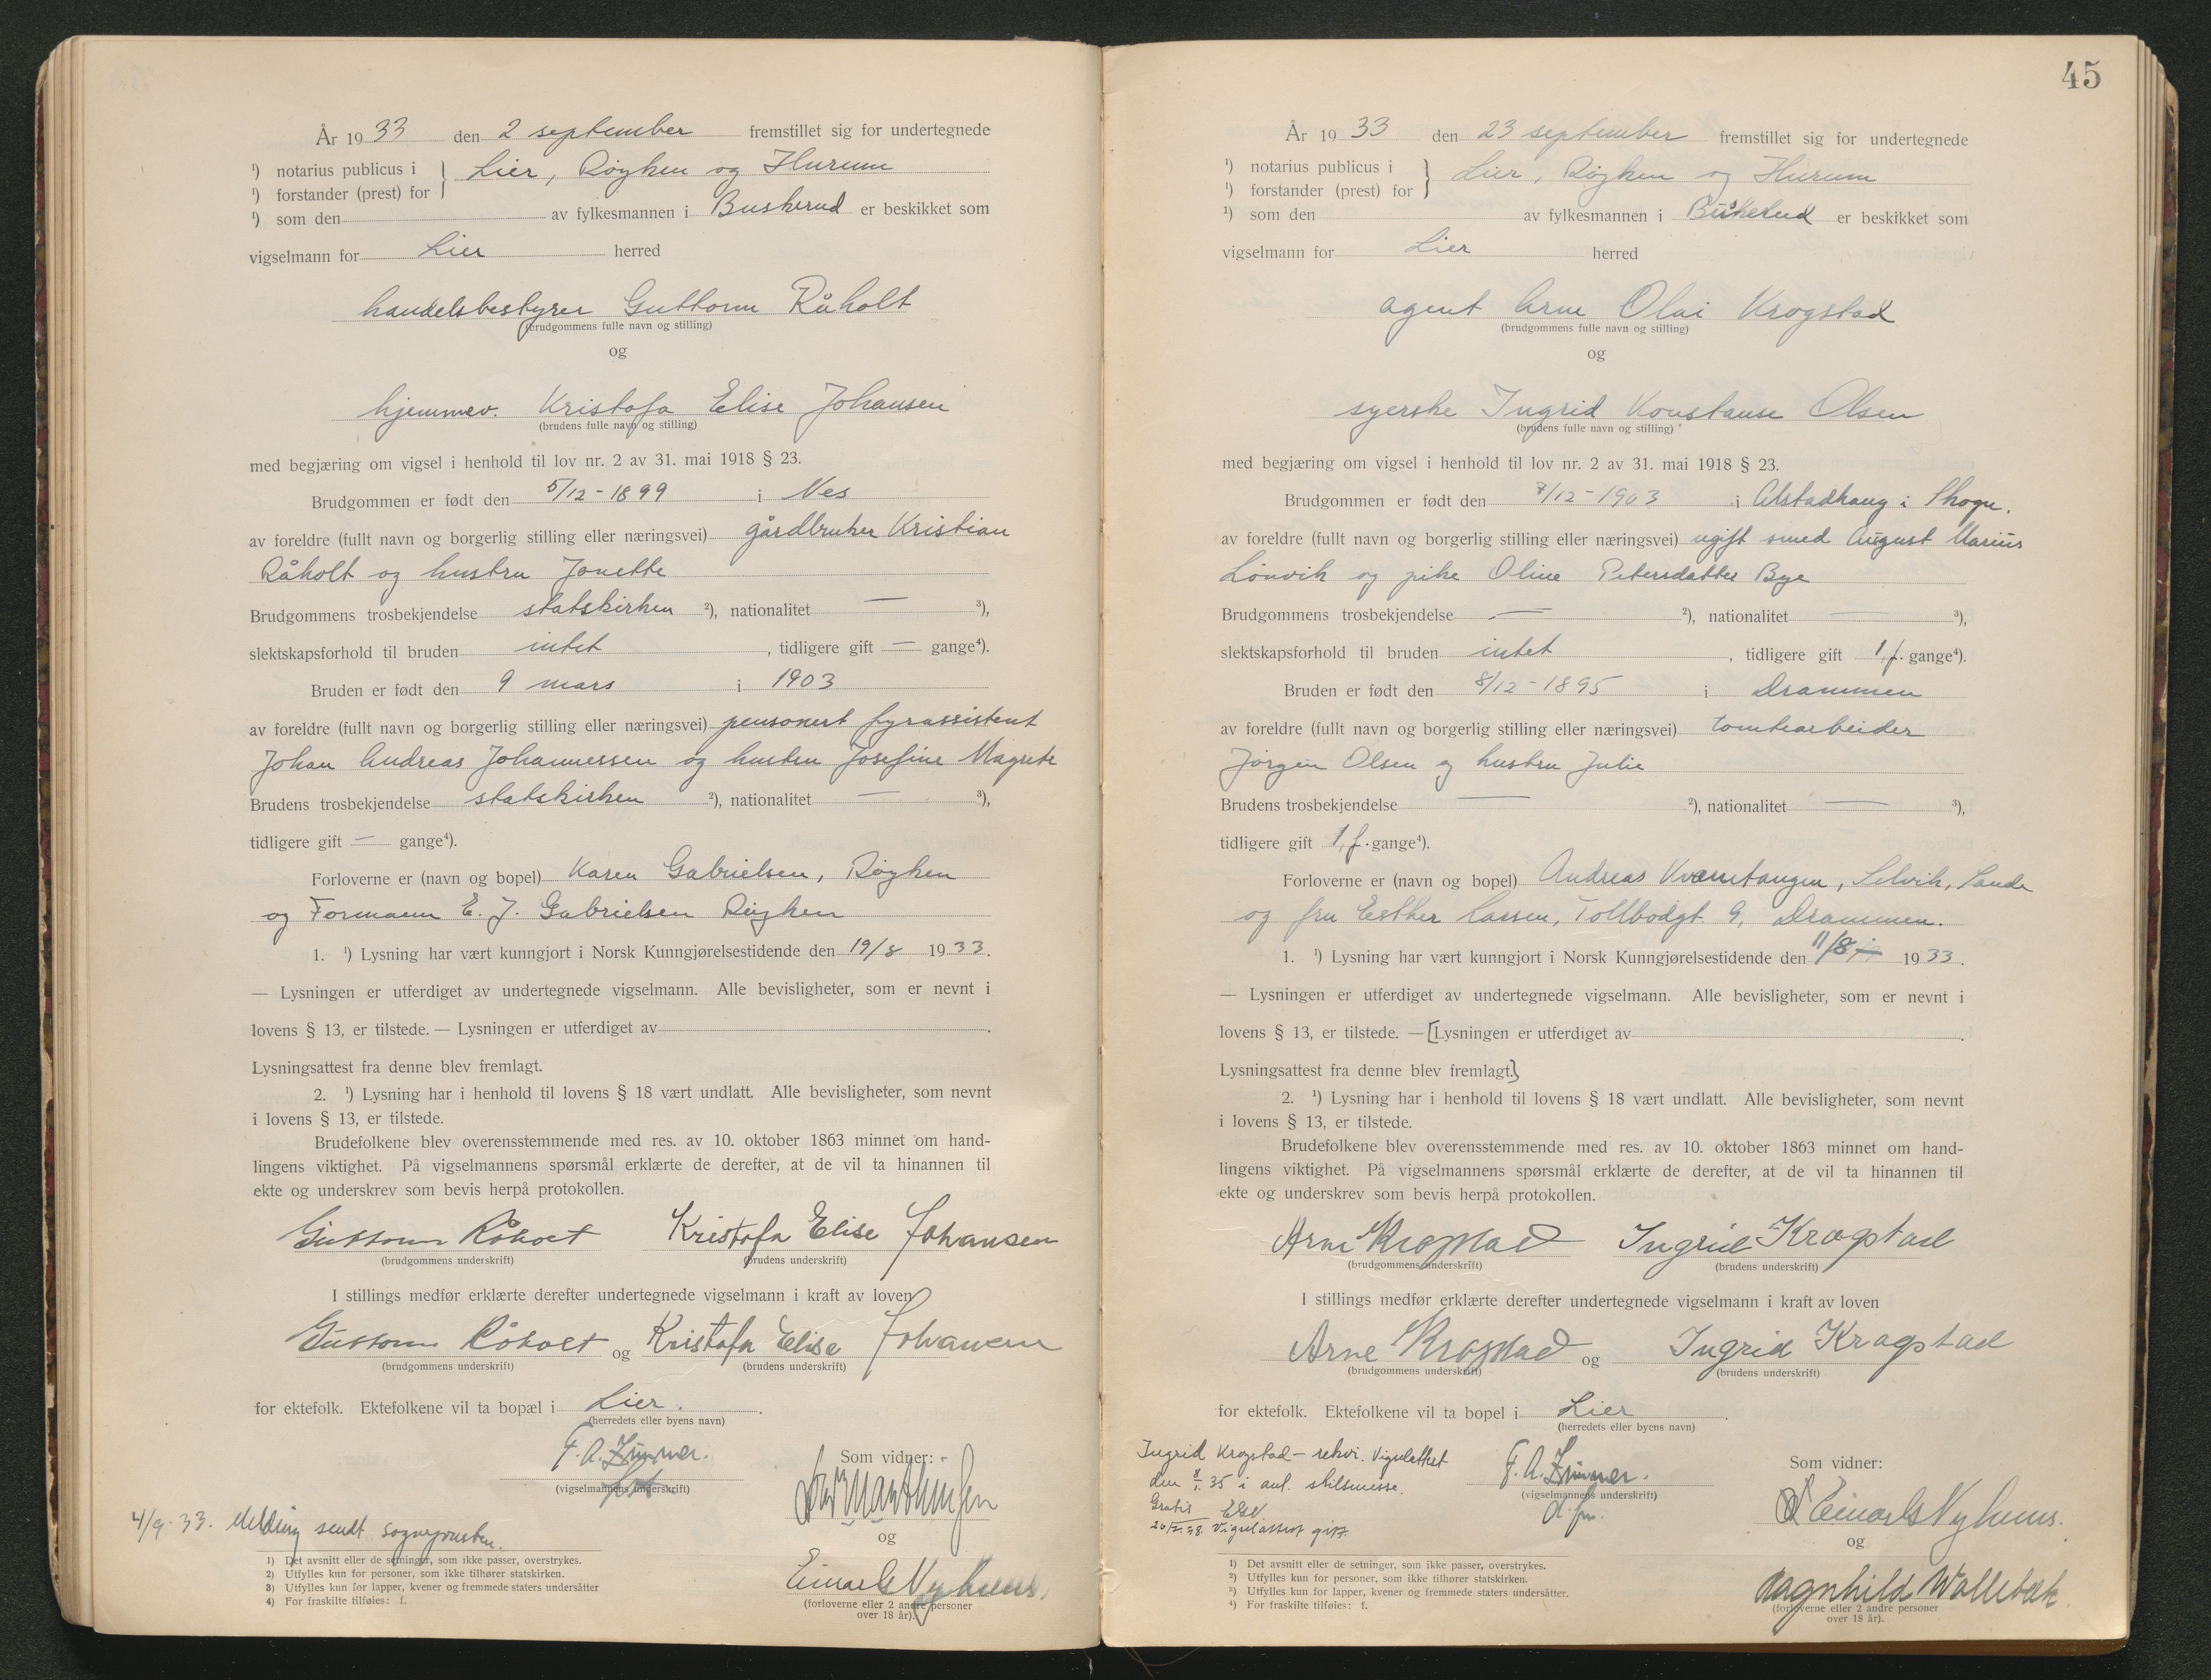 År 19 33 den 2 september fremstillet sig for undertegnede
¹) notarius publicus i
¹) forstander (prest) for } Lier, Røyken og Hurum
¹) som den av fylkesmannen i Buskerud er beskikket som
vigselmann for Lier herred
handelsbestyrer Guttorm Råholt
(brudgommens fulle navn og stilling)
og
hjemmev. Kristofa Elise Johansen
(brudens fulle navn og stilling)
med begjæring om vigsel i henhold til lov nr. 2 av 31. mai 1918 § 23.
Brudgommen er født den 5/12 - 1899 i Nes
av foreldre (fullt navn og borgerlig stilling eller næringsvei) gårdbruker Kristian
Råholt og hustru Jonette
Brudgommens trosbekjendelse statskirken ²), nationalitet — ³),
slektskapsforhold til bruden intet , tidligere gift — gange⁴).
Bruden er født den 9 mars i 1903
av foreldre (fullt navn og borgerlig stilling eller næringsvei) pensonert fyrassistent
Johan Andreas Johannessen og hustru Josefine Magrete
Brudens trosbekjendelse statskirken ²), nationalitet — ³),
tidligere gift — gange⁴).
Forloverne er (navn og bopel) Karen Gabrielsen, Røyken
og Formann E. J. Gabrielsen Røyken
1. ¹) Lysning har vært kunngjort i Norsk Kunngjørelsestidende den 19/8 19 33.
— Lysningen er utferdiget av undertegnede vigselmann. Alle bevisligheter, som er nevnt i
lovens § 13, er tilstede. — Lysningen er utferdiget av .
Lysningsattest fra denne blev fremlagt.
2. ¹) Lysning har i henhold til lovens § 18 vært undlatt. Alle bevisligheter, som nevnt
i lovens § 13, er tilstede.
Brudefolkene blev overensstemmende med res. av 10. oktober 1863 minnet om hand-
lingens viktighet. På vigselmannens spørsmål erklærte de derefter, at de vil ta hinannen til
ekte og underskrev som bevis herpå protokollen.
Guttorm Råholt Kristofa Elise Johansen
(brudgommens underskrift) (brudens underskrift)
I stillings medfør erklærte derefter undertegnede vigselmann i kraft av loven
Guttorm Råholt og Kristofa Elise Johansen
(brudgommens underskrift) (brudens underskrift)
for ektefolk. Ektefolkene vil ta bopæl i Lier.
(herredets eller byens navn)
F. A. Zimmer.
(vigselmannens underskrift)
Som vidner:
og
Einar Nyhuus.
(forloverne eller 2 andre personer
over 18 år).
4/9-33. Melding sendt sognepresten.
1) Det avsnitt eller de setninger, som ikke passer, overstrykes.
2) Utfylles kun for personer, som ikke tilhører statskirken.
3) Utfylles kun for lapper, kvener og fremmede staters undersåtter
4) For fraskilte tilføies: f.
45
År 19 33 den 23 september fremstillet sig for undertegnede
¹) notarius publicus i
¹) forstander (prest) for } Lier, Røyken og Hurum
¹) som den av fylkesmannen i Buskerud er beskikket som
vigselmann for Lier herred
agent Arne Olai Krogstad
(brudgommens fulle navn og stilling)
og
syerske Ingrid Konstanse Olsen
(brudens fulle navn og stilling)
med begjæring om vigsel i henhold til lov nr. 2 av 31. mai 1918 § 23.
Brudgommen er født den 7/12 - 1903 i Alstadhaug i Skogn.
av foreldre (fullt navn og borgerlig stilling eller næringsvei) ugift smed August Marius
Lønvik og pike Oline Petersdatter Bye
Brudgommens trosbekjendelse — ²), nationalitet — ³),
slektskapsforhold til bruden intet , tidligere gift 1, f. gange⁴).
Bruden er født den 8/12 - 1895 i Drammen
av foreldre (fullt navn og borgerlig stilling eller næringsvei) tomtearbeider
Jørgen Olsen og hustru Julie
Brudens trosbekjendelse — ²), nationalitet — ³),
tidligere gift 1, f. gange⁴).
Forloverne er (navn og bopel) Andreas Kværntangen, Selvik, Sande
og fru Esther Larsen, Tollbodgt. 9, Drammen.
1. ¹) Lysning har vært kunngjort i Norsk Kunngjørelsestidende den 11/8 19 33.
— Lysningen er utferdiget av undertegnede vigselmann. Alle bevisligheter, som er nevnt i
lovens § 13, er tilstede. — [Lysningen er utferdiget av .
Lysningsattest fra denne blev fremlagt.]
2. ¹) Lysning har i henhold til lovens § 18 vært undlatt. Alle bevisligheter, som nevnt
i lovens § 13, er tilstede.
Brudefolkene blev overensstemmende med res. av 10. oktober 1863 minnet om hand-
lingens viktighet. På vigselmannens spørsmål erklærte de derefter, at de vil ta hinannen til
ekte og underskrev som bevis herpå protokollen.
Arne Krogstad Ingrid Krogstad
(brudgommens underskrift) (brudens underskrift)
I stillings medfør erklærte derefter undertegnede vigselmann i kraft av loven
Arne Krogstad og Ingrid Krogstad
(brudgommens underskrift) (brudens underskrift)
for ektefolk. Ektefolkene vil ta bopel i Lier.
(herredets eller byens navn)
Ingrid Krogstad — rekvi. Vigselattest
den 8/1. 35 i anl. skilsmisse.
Gratis
Vigselattest gitt.
F. A. Zimmer.
(vigselmannens underskrift)
Som vidner:
Einar Nyhuus.
og
Ragnhild Wollebæk.
(forloverne eller 2 andre personer
over 18 år).
1) Det avsnitt eller de setninger, som ikke passer, overstrykes.
2) Utfylles kun for personer, som ikke tilhører statskirken.
3) Utfylles kun for lapper, kvener og fremmede staters undersåtter.
4) For fraskilte tilføies: f.